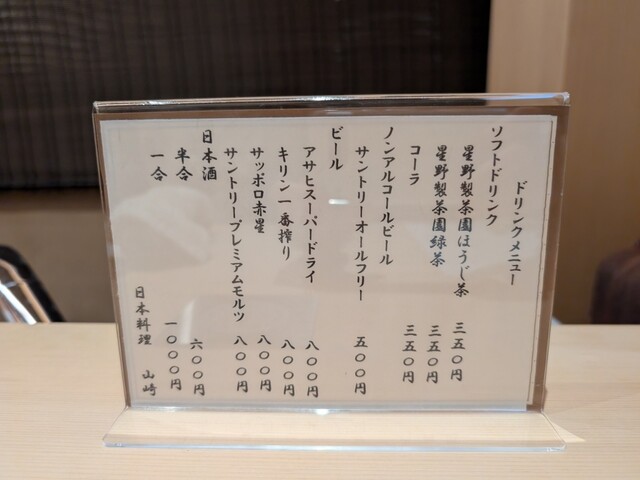 ドリンクメニュー
ソフトドリンク
星野製茶園ほうじ茶 三五〇円
星野製茶園緑茶 三五〇円
コーラ 三五〇円
ノンアルコールビール
サントリーオールフリー 五〇〇円
ビール
アサヒスーパードライ 八〇〇円
キリン一番搾り 八〇〇円
サッポロ赤星 八〇〇円
サントリープレミアムモルツ 八〇〇円
日本酒
半合 六〇〇円
一合 一〇〇〇円
日本料理 山崎